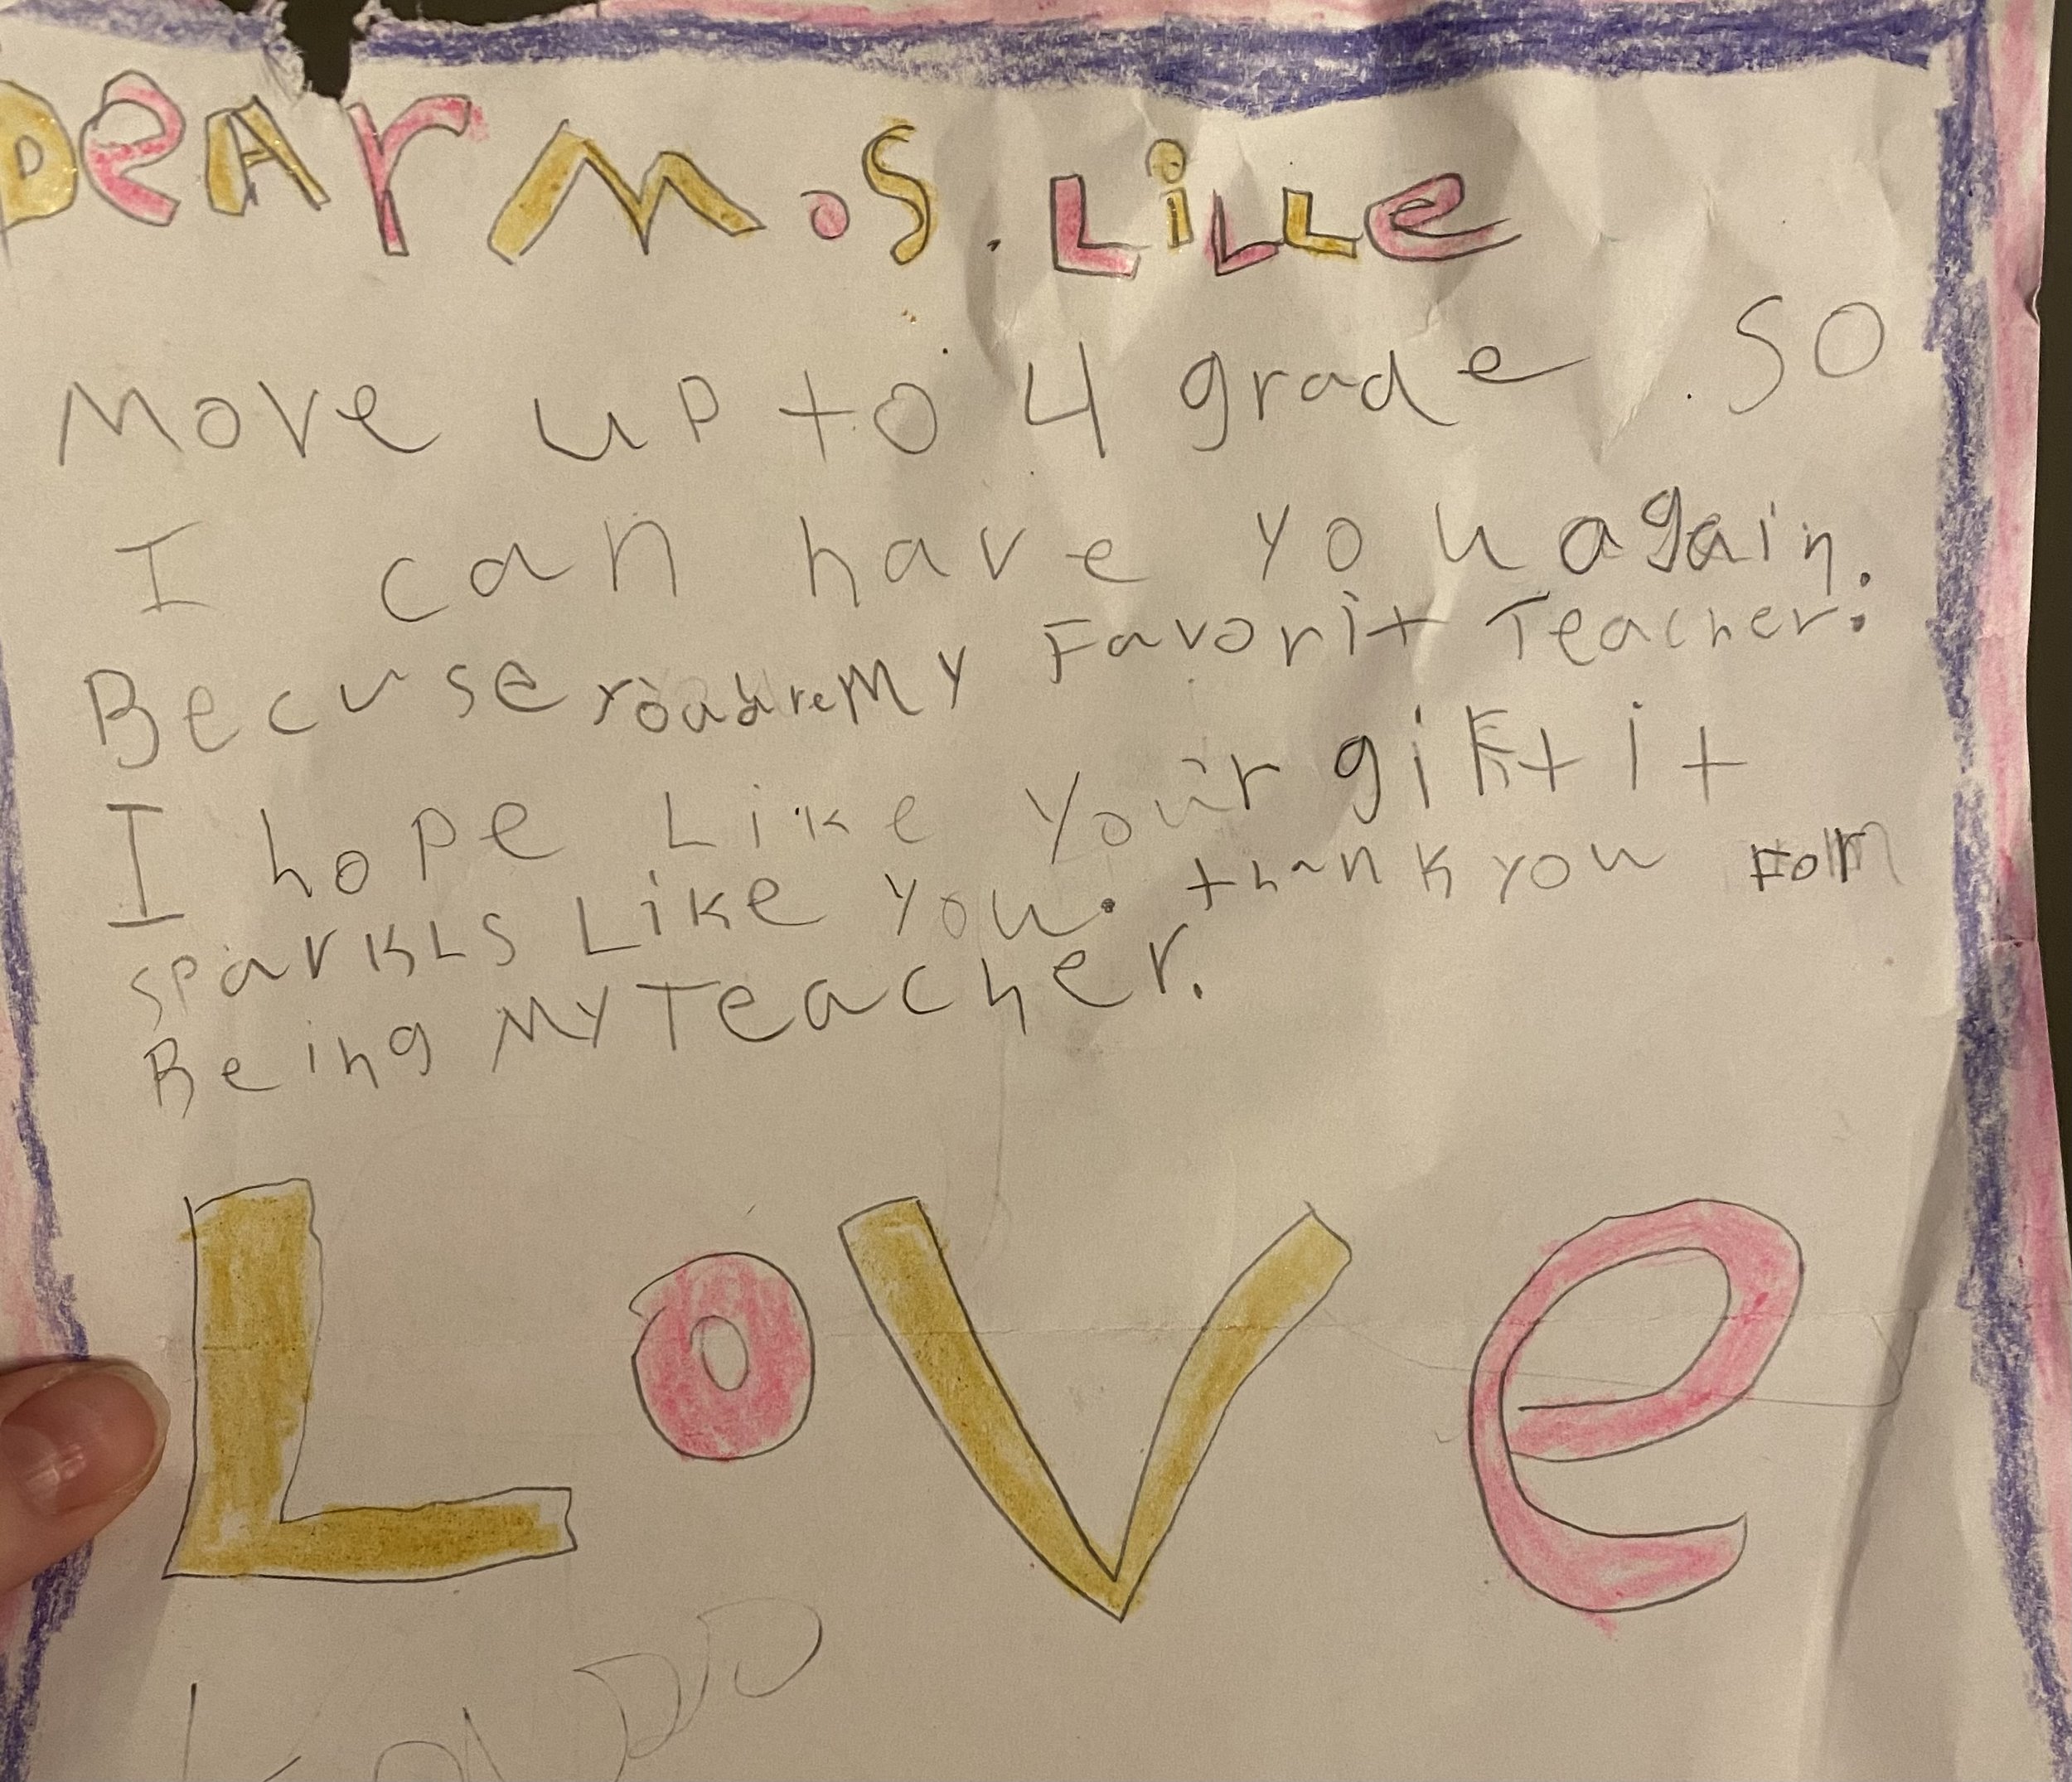 DeAr M.S. LiLLe
Move up to 4 grade. SO
I can have you again.
Becuse you are My Favorit Teacher.
I hope Like your gift it
sparkls Like you. thank you
Being My Teacher.
LoVe